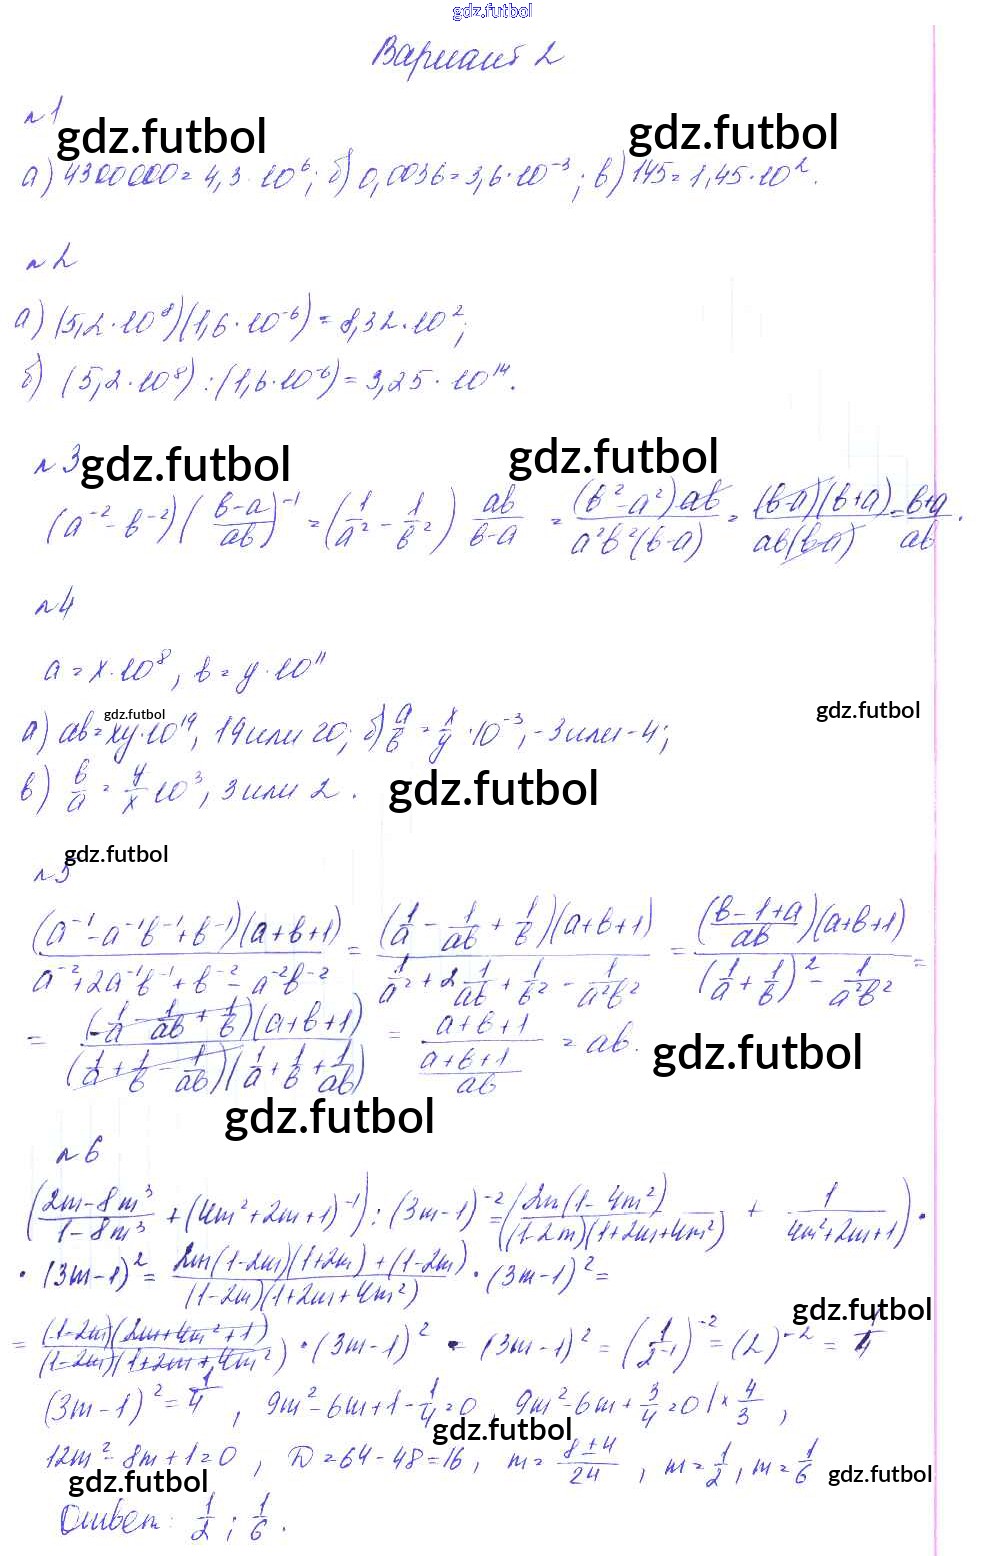 gdz.futbol
Вариант 2
n 1
gdz.futbol gdz.futbol
а) 4300000 = 4,3 · 10⁶; б) 0,0036 = 3,6 · 10⁻³; в) 145 = 1,45 · 10².
n 2
а) (5,2 · 10⁸)(1,6 · 10⁻⁶) = 8,32 · 10²;
б) (5,2 · 10⁸) : (1,6 · 10⁻⁶) = 3,25 · 10¹⁴.
n 3 gdz.futbol gdz.futbol
(a⁻² - b⁻²)((b-a)/ab)⁻¹ = (1/a² - 1/b²) ab/(b-a) = (b²-a²)ab/(a²b²(b-a)) = (b-a)(b+a)/(ab(b-a)) = (b+a)/ab.
n 4
a = x · 10⁸, b = y · 10¹¹
gdz.futbol gdz.futbol
а) ab = xy · 10¹⁹, 19 или 20; б) a/b = x/y · 10⁻³, -3 или -4;
в) b/a = y/x 10³, 3 или 2. gdz.futbol
gdz.futbol
n 5
(a⁻¹ - a⁻¹b⁻¹ + b⁻¹)(a+b+1)/(a⁻² + 2a⁻¹b⁻¹ + b⁻² - a⁻²b⁻²) = (1/a - 1/ab + 1/b)(a+b+1)/(1/a² + 2 1/ab + 1/b² - 1/a²b²) = ((b-1+a)/ab)(a+b+1)/((1/a + 1/b)² - 1/a²b²) =
= (1/a - 1/ab + 1/b)(a+b+1)/((1/a + 1/b - 1/ab)(1/a + 1/b + 1/ab)) = (a+b+1)/((a+b+1)/ab) = ab. gdz.futbol
gdz.futbol
n 6
((2m-8m³)/(1-8m³) + (4m²+2m+1)⁻¹) : (3m-1)⁻² = (2m(1-4m²)/((1-2m)(1+2m+4m²)) + 1/(4m²+2m+1)) ·
· (3m-1)² = (2m(1-2m)(1+2m) + (1-2m))/((1-2m)(1+2m+4m²)) · (3m-1)² =
gdz.futbol
= (1-2m)(2m+4m²+1)/((1-2m)(1+2m+4m²)) · (3m-1)² = (3m-1)² = (1/2⁻¹)⁻² = (2)⁻² = 1/4
(3m-1)² = 1/4, 9m² - 6m + 1 - 1/4 = 0, 9m² - 6m + 3/4 = 0 | × 4/3,
gdz.futbol
12m² - 8m + 1 = 0, D = 64 - 48 = 16, m = (8±4)/24, m = 1/2, m = 1/6
gdz.futbol gdz.futbol
Ответ: 1/2; 1/6.